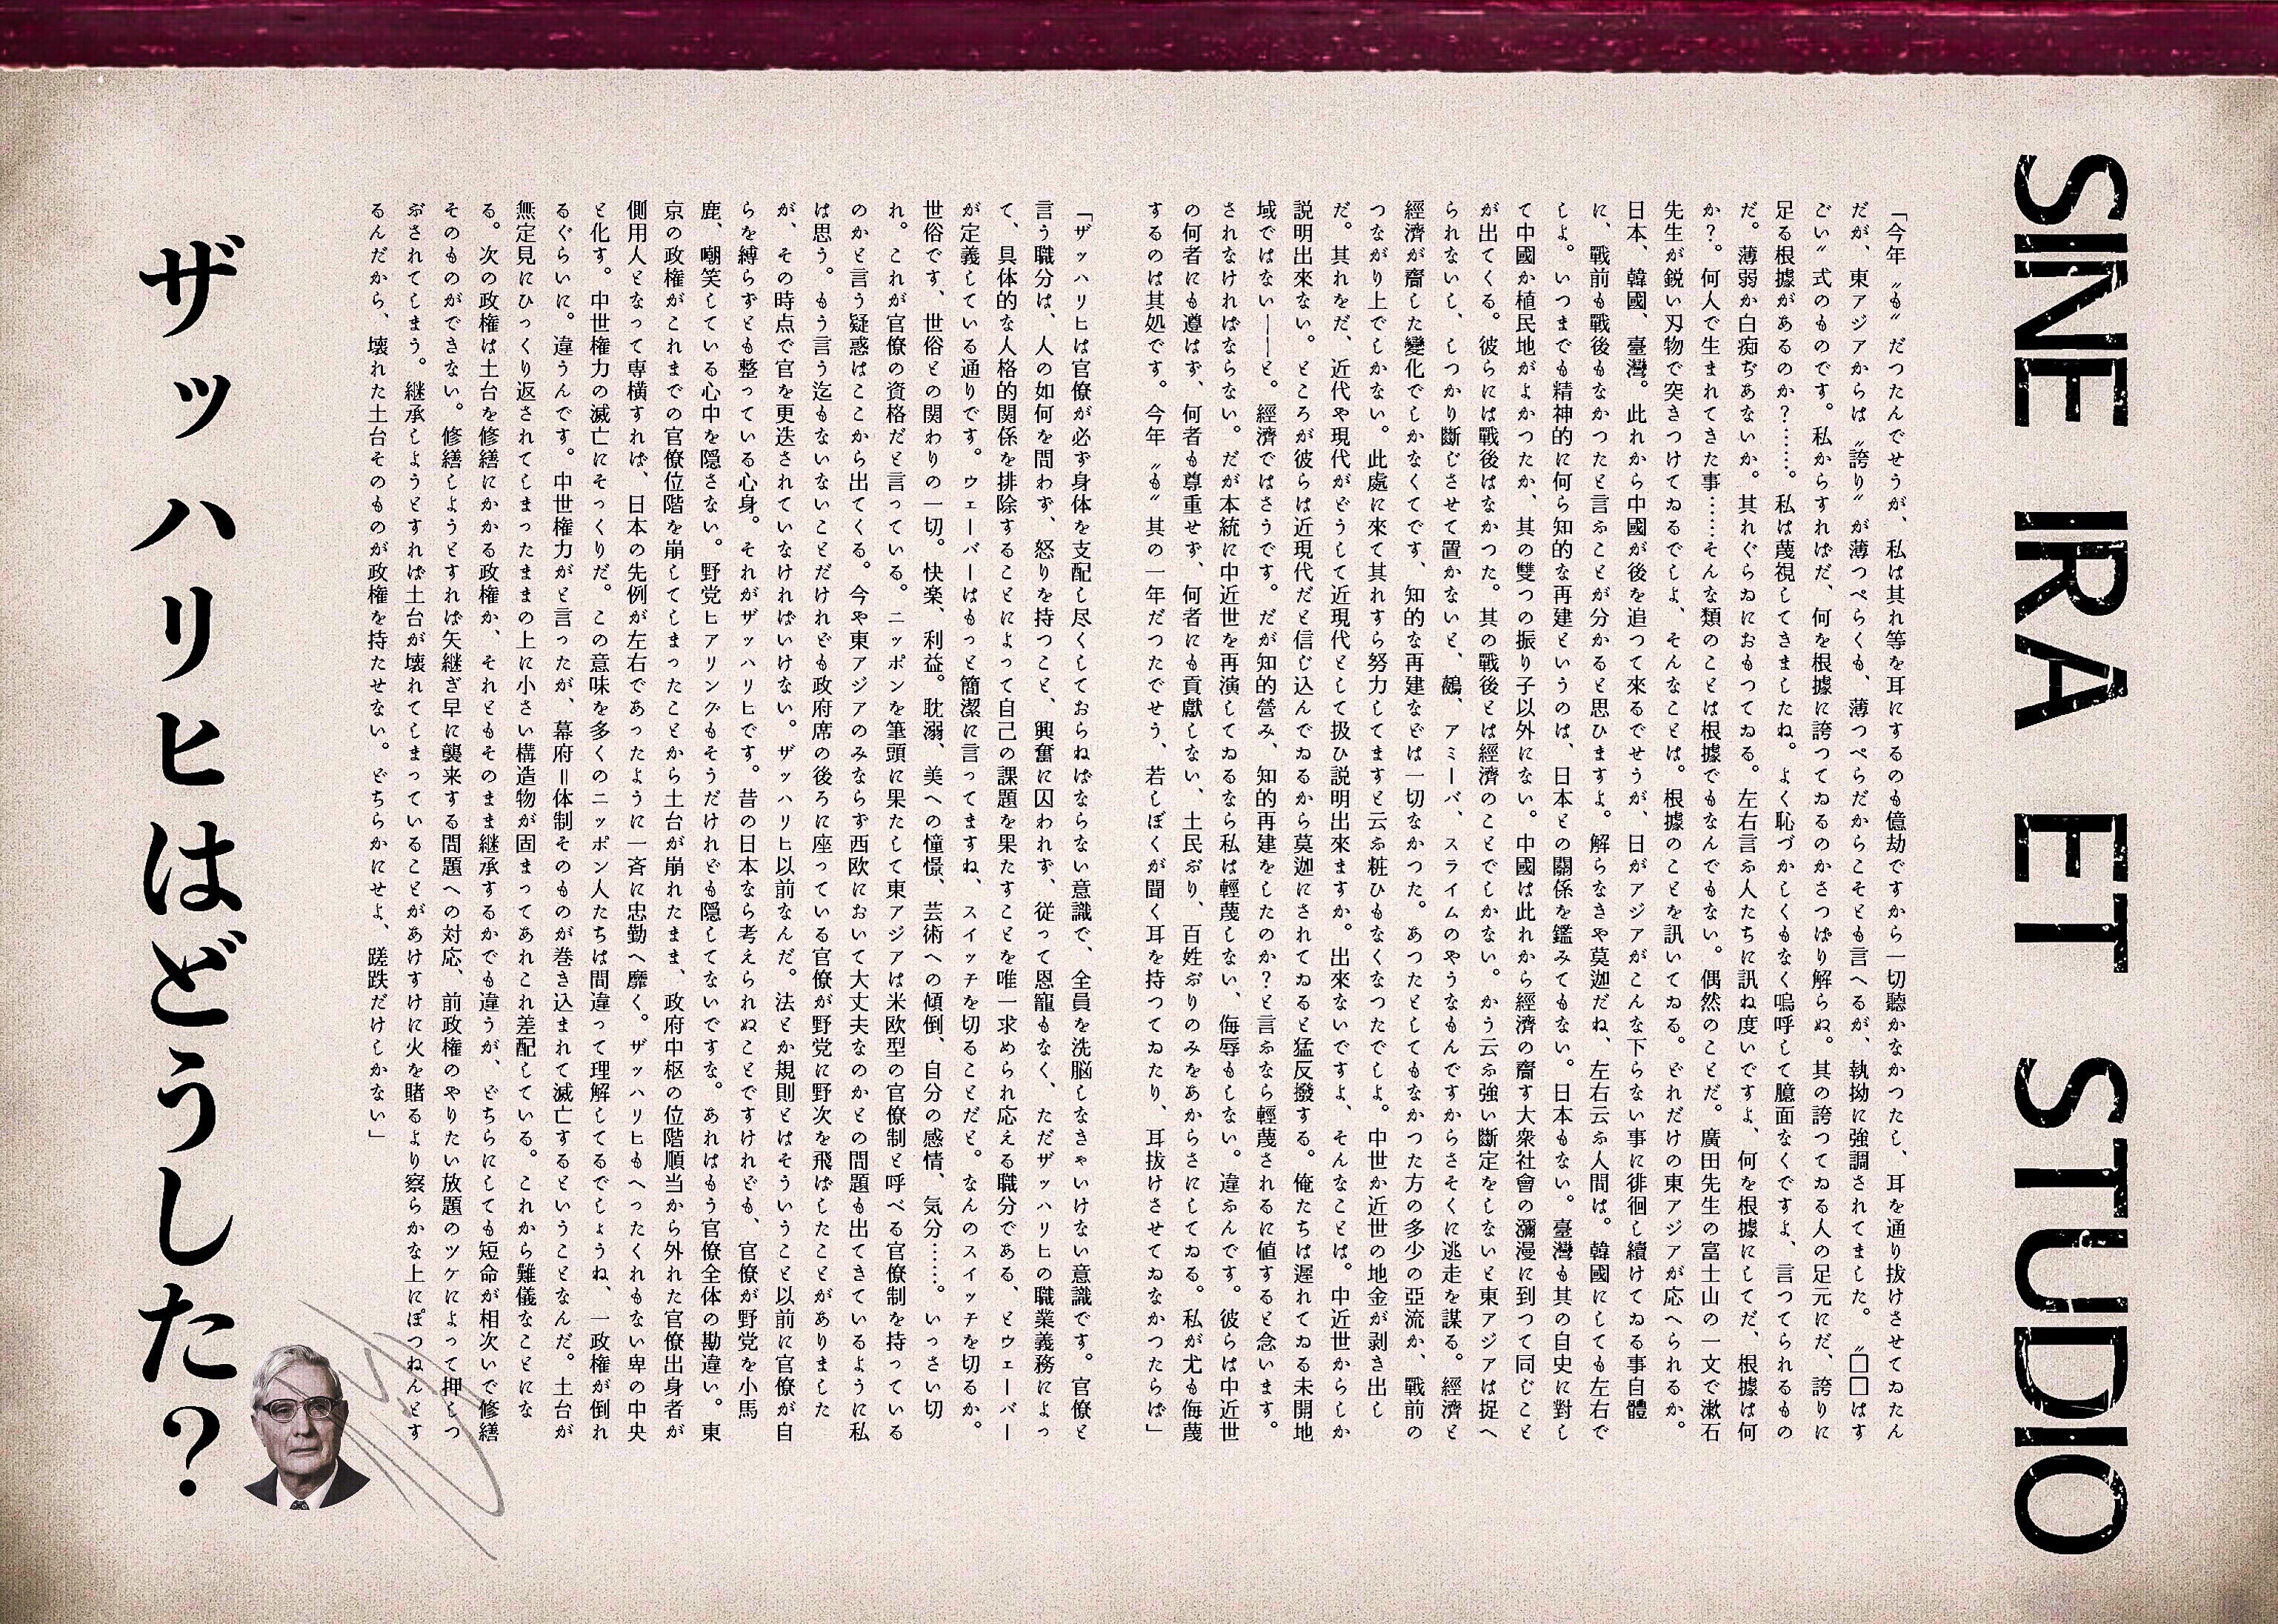 SINE IRA ET STUDIO
「今年〝も〟だつたんでせうが、私は其れ等を耳にするのも億劫ですから一切聽かなかつたし、耳を通り抜けさせてゐたん
だが、東アジアからは〝誇り〟が薄つぺらくも、薄つぺらだからこそとも言へるが、執拗に強調されてました。〝□□はす
ごい〟式のものです。私からすればだ、何を根據に誇つてゐるのかさつぱり解らぬ。其の誇つてゐる人の足元にだ、誇りに
足る根據があるのか?……。私は蔑視してきましたね。よく恥づかしくもなく嗚呼して臆面なくですよ、言つてられるもの
だ。薄弱か白痴ぢあないか。其れぐらゐにおもつてゐる。左右言ふ人たちに訊ね度いですよ、何を根據にしてだ、根據は何
か?。何人で生まれてきた事……そんな類のことは根據でもなんでもない。偶然のことだ。廣田先生の富士山の一文で漱石
先生が鋭い刃物で突きつけてゐるでしよ、そんなことは。根據のことを訊いてゐる。どれだけの東アジアが応へられるか。
日本、韓國、臺灣。此れから中國が後を追つて来るでせうが、日がアジアがこんな下らない事に徘徊し續けてゐる事自體
に、戰前も戰後もなかつたと言ふことが分かると思ひますよ。解らなきや莫迦だね、左右云ふ人間は。韓國にしても左右で
しよ。いつまでも精神的に何ら知的な再建というのは、日本との關係を鑑みてもない。日本もない。臺灣も其の自史に對し
て中國か植民地がよかつたか、其の雙つの振り子以外にない。中國は此れから經濟の齎す大衆社會の瀰漫に到つて同じこと
が出てくる。彼らには戰後はなかつた。其の戰後とは經濟のことでしかない。かう云ふ強い斷定をしないと東アジアは捉へ
られないし、しつかり斷じさせて置かないと、鵺、アミーバ、スライムのやうなもんですからさそくに逃走を謀る。經濟と
經濟が齎した變化でしかなくてです、知的な再建などは一切なかつた。あつたとしてもなかつた方の多少の亞流か、戰前の
つながり上でしかない。此處に來て其れすら努力してますと云ふ粧ひもなくなつたでしよ。中世か近世の地金が剥き出し
だ。其れをだ、近代や現代がどうして近現代として扱ひ説明出來ますか。出來ないですよ、そんなことは。中近世からしか
説明出來ない。ところが彼らは近現代だと信じ込んでゐるから莫迦にされてゐると猛反撥する。俺たちは遅れてゐる未開地
域ではない――と。經濟ではさうです。だが知的營み、知的再建をしたのか?と言ふなら輕蔑されるに値すると念います。
されなければならない。だが本統に中近世を再演してゐるなら私は輕蔑しない、侮辱もしない。違ふんです。彼らは中近世
の何者にも遵はず、何者も尊重せず、何者にも貢獻しない、土民ぶり、百姓ぶりのみをあからさにしてゐる。私が尤も侮蔑
するのは其処です。今年〝も〟其の一年だつたでせう、若しぼくが聞く耳を持つてゐたり、耳抜けさせてゐなかつたらば」
「ザッハリヒは官僚が必ず身体を支配し尽くしておらねばならない意識で、全員を洗脳しなきゃいけない意識です。官僚と
言う職分は、人の如何を問わず、怒りを持つこと、興奮に囚われず、従って恩寵もなく、ただザッハリヒの職業義務によっ
て、具体的な人格的関係を排除することによって自己の課題を果たすことを唯一求められ応える職分である、とウェーバー
が定義している通りです。ウェーバーはもっと簡潔に言ってますね、スイッチを切ることだと。なんのスイッチを切るか。
世俗です、世俗との関わりの一切。快楽、利益。耽溺、美への憧憬、芸術への傾倒、自分の感情、気分……。いっさい切
れ。これが官僚の資格だと言っている。ニッポンを筆頭に果たして東アジアは米欧型の官僚制と呼べる官僚制を持っている
のかと言う疑惑はここから出てくる。今や東アジアのみならず西欧において大丈夫なのかとの問題も出てきているように私
は思う。もう言う迄もないないことだけれども政府席の後ろに座っている官僚が野党に野次を飛ばしたことがありました
が、その時点で官を更迭されていなければいけない。ザッハリヒ以前なんだ。法とか規則とはそういうこと以前に官僚が自
らを縛らずとも整っている心身。それがザッハリヒです。昔の日本なら考えられぬことですけれども、官僚が野党を小馬
鹿、嘲笑している心中を隠さない。野党ヒアリングもそうだけれども隠してないですな。あればもう官僚全体の勘違い。東
京の政権がこれまでの官僚位階を崩してしまったことから土台が崩れたまま、政府中枢の位階順当から外れた官僚出身者が
側用人となって専横すれば、日本の先例が左右であったように一斉に忠勤へ靡く。ザッハリヒもへったくれもない卑の中央
と化す。中世権力の滅亡にそっくりだ。この意味を多くのニッポン人たちは間違って理解してるでしょうね、一政権が倒れ
るぐらいに。違うんです。中世権力がと言ったが、幕府=体制そのものが巻き込まれて滅亡するということなんだ。土台が
無定見にひっくり返されてしまったままの上に小さい構造物が固まってあれこれ差配している。これから難儀なことにな
る。次の政権は土台を修繕にかかる政権か、それともそのまま継承するかでも違うが、どちらにしても短命が相次いで修繕
そのものができない。修繕しようとすれば矢継ぎ早に襲来する問題への対応、前政権のやりたい放題のツケによって押しつ
ぶされてしまう。継承しようとすれば土台が壊れてしまっていることがあけすけに火を賭るより察らかな上にぽつねんとす
るんだから、壊れた土台そのものが政権を持たせない。どちらかにせよ、蹉跌だけしかない」
ザッハリヒはどうした?